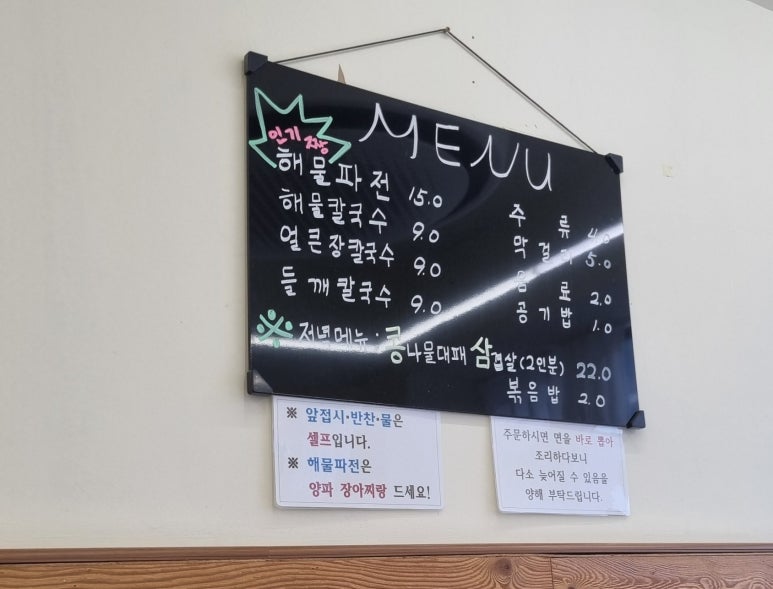 MENU
인기 짱
해물파전 15.0
해물칼국수 9.0
얼큰장칼국수 9.0
들깨칼국수 9.0
주류 4.0
막걸리 5.0
음료 2.0
공기밥 1.0
※ 저녁메뉴 : 콩나물대패 삼겹살(2인분) 22.0
볶음밥 2.0
※ 앞접시·반찬·물은
셀프입니다.
※ 해물파전은
양파 장아찌랑 드세요!
주문하시면 면을 바로 뽑아
조리하다보니
다소 늦어질 수 있음을
양해 부탁드립니다.